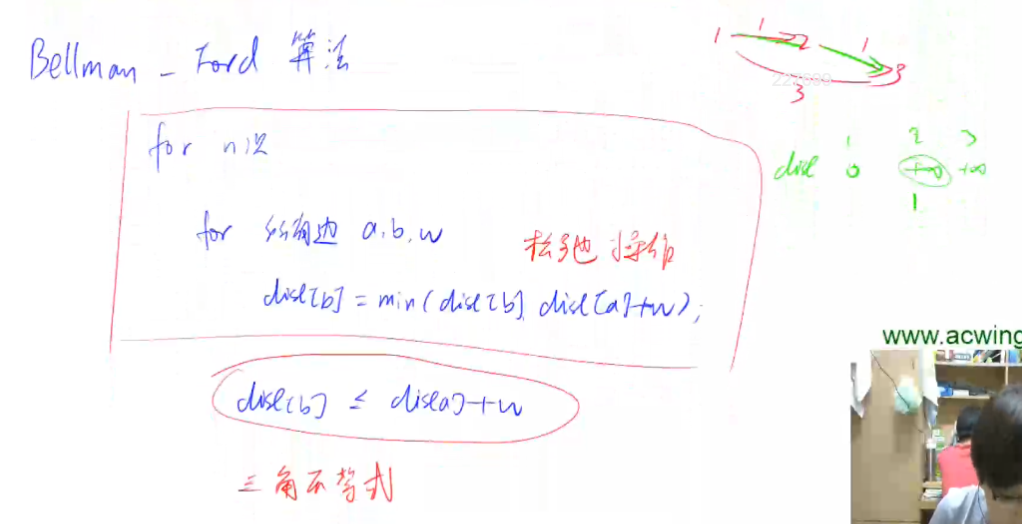 Bellman - Ford 算法
for n次
for 所有边 a,b,w
松弛操作
dist[b] = min(dist[b], dist[a]+w);
dist[b] ≤ dist[a]+w
三角不等式
1 1 2 1 3
3
1 2 3
dist 0 +∞ +∞
1
www.acwing